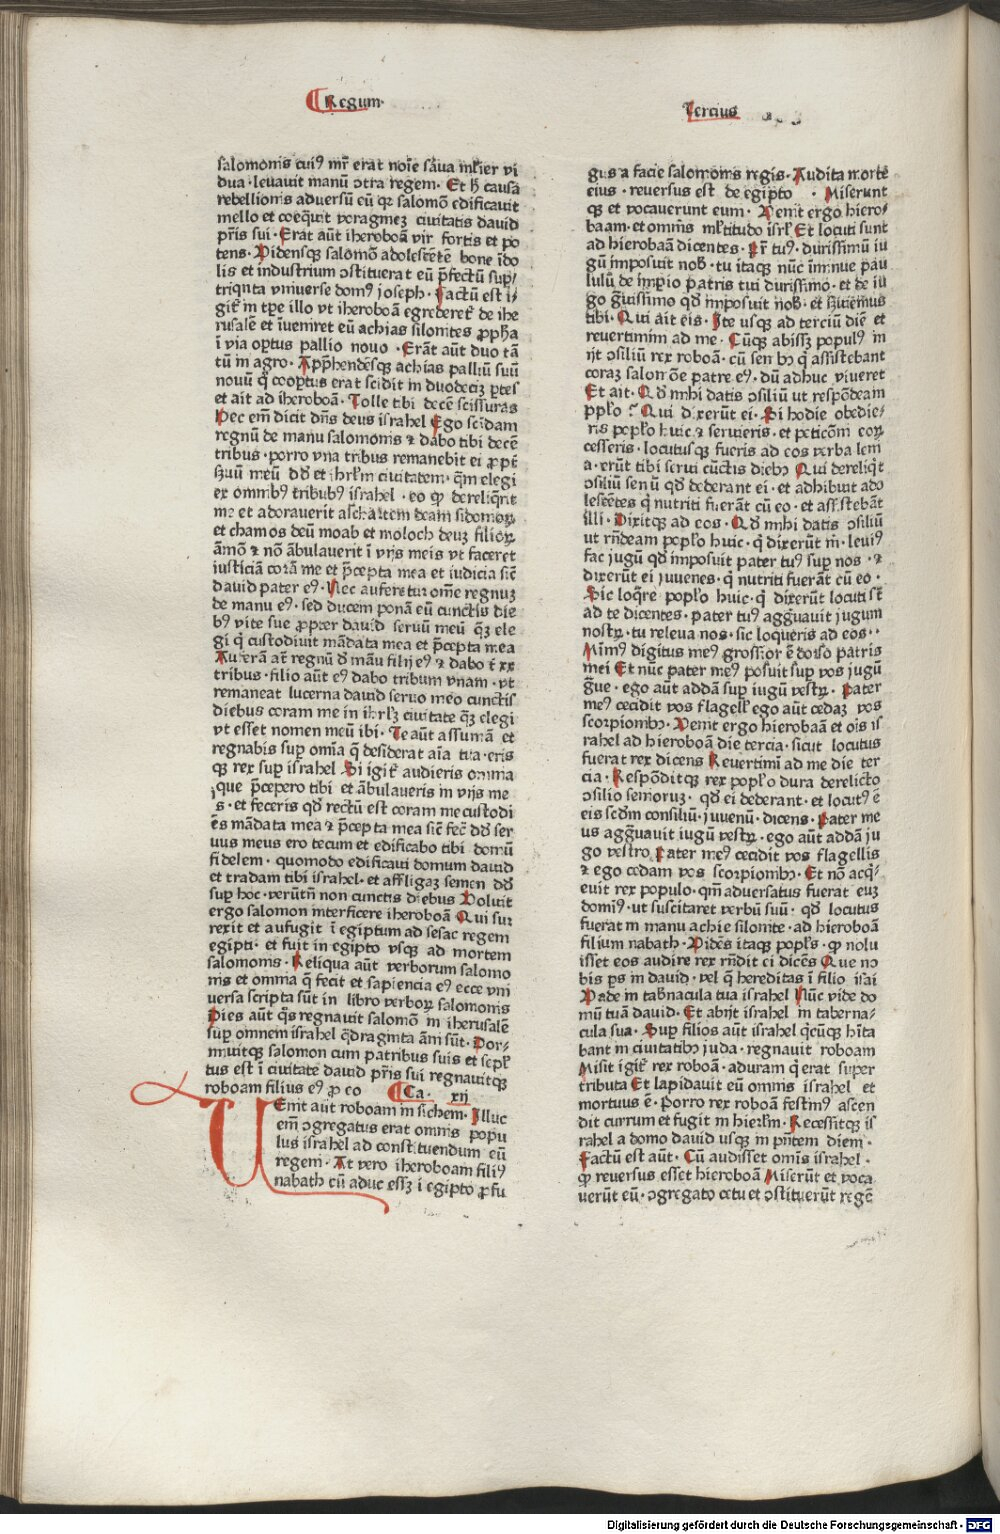 Regum·
Tercius
salomonis cuiꝰ mr̄ erat noīe sāva mlier vi
dua·levavit manū ꝯtra regem· Et h̄ causa
rebellionis adversū eū qꝛ salomō edificauit
mello et coequit voragineꝫ civitatis david
prīs sui· Erat aūt iheroboā vir fortis et po
tens· Vidensqꝫ salomō adolescētē bone īdo
lis et industrium ꝯstituerat eū p̄fectū sup/
tributa vniverse domꝰ joseph· Factū est i/
git̄ in tꝑe illo vt iheroboā egrederet̄ de ihe
rusalē et īveniret eū achias silonites ꝓpha
ī via oꝑtus pallio novo · Erāt aūt duo tā
tū in agro· Appͥhendēsqꝫ achias palliū suū
novū q̄ cooꝑtus erat scidit in duodeciꝫ ꝑtes
et ait ad iheroboā· Tolle tibi decē scissuras
Hec em̄ dicit dn̄s deus israhel Ego scidam
regnū de manu salomonis ⁊ dabo tibi decē
tribus· porro vna tribus remanebit ei ꝓpt̄
ẜvū meū dd̄ et ihrl̄m civitatem· q̄m elegi
ex omnibꝰ tribubꝰ israhel · eo ꝙ dereliq̄rit
me et adoraverit aschartem deam sidonioꝝ
et chamos deū moab et moloch deuꝫ filioꝝ
āmō ⁊ nō ābulauerit ī vijs meis vt faceret
iusticiā corā me et p̄cepta mea et iudicia sic̄
david pater eꝰ· Nec auferetur om̄e regnuꝫ
de manu eꝰ· sed ducem ponā eū cunctis die
bꝰ vite sue ꝓpter david servū meū q̄ꝫ ele
gi q̄ custodivit mādata mea et p̄cepta mea
Auferā at̄ regnū d̄ māu filij eꝰ ⁊ dabo t̄ xx
tribus· filio aūt eꝰ dabo tribum vnam· vt
remaneat lucerna david servo meo cunctis
diebus coram me in ihrlꝫ civitate q̄ꝫ elegi
vt esset nomen meū ibi· Te aūt assumā et
regnabis sup om̄ia q̄ desiderat aīa tua·eris
qꝫ rex sup israhel Si igit̄ audieris omnia
que p̄cepero tibi et ābulaveris in vijs me
s· et feceris qd̄ rectū est coram me custodi
ēs mādata mea ⁊ p̄cepta mea sic̄ fec̄ dd̄ ser
vus meus ero tecum et edificabo tibi domū
fidelem· quomodo edificaui domum david
et tradam tibi israhel· et affligaꝫ semen dd̄
sup hoc·verūtn̄ non cunctis diebus Voluit
ergo salomon interficere iheroboā Qui sur
rexit et aufugit ī egiptum ad sesac regem
egipti· et fuit in egipto vsqꝫ ad mortem
salomonis· Reliqua aūt verborum salomo
nis et omnia q̄ fecit et sapiencia eꝰ ecce vni
versa scripta sūt in libro verboꝝ salomonis
Dies aūt q̄s regnavit salomō in iherusalē
sup omnem israhel q̄draginta āni sūt· Dor/
mivitqꝫ salomon cum patribus suis et sepl̄
tus est ī civitate david prīs sui regnavitqꝫ
roboam filius eꝰ ꝓ eo
Ca· xij
VEnit aūt roboam in sichem· Illuc
em̄ ꝯgregatus erat omnis popu
lus israhel ad constituendum eū
regem· At vero iheroboam filiꝰ
nabath cū aduc essꝫ ī egipto ꝓfu
gus a facie salomonis regis· Audita morte
eius · reversus est de egipto · Miserunt
qꝫ et vocaverunt eum· Venit ergo hiero/
baam·et omnis ml̄titudo isrl̄ Et locuti sunt
ad hierobaā dicentes· Pr̄ tuꝰ· durissimū iu
gū imposuit nob̄· tu itaqꝫ nūc īminue pau
lulū de imꝑio patris tui durissimo·et de iu
go g̃uissimo qd̄ imposuit nob̄· et ẜviemus
tibi·Qui ait eis· Ite usqꝫ ad terciū diē et
revertimini ad me· Cūqꝫ abissꝫ populꝰ in
ijt ꝯsiliū rex roboā· cū senibꝫ q̄ assistebant
coraꝫ salomōe patre eꝰ· dū adhuc viveret
Et ait· Qd̄ mihi datis ꝯsiliū ut respōdeam
ppl̄o ? Qui dixerūt ei· Si hodie obedie/
ris popl̄o huic ⁊ servieris·et peticōni eoꝝ
cesseris·locutusqꝫ fueris ad eos verba leni
a·erūt tibi servi cūctis diebꝫ Qui dereliq̄t
ꝯsiliū senū qd̄ dederant ei· et adhibuit ado
lescētes q̄ nutriti fuerāt cū eo·et assistebāt
illi· Dixitqꝫ ad eos· Qd̄ mihi datis ꝯsiliū
ut rn̄deam popl̄o huic· q̄ dixerūt m̄· leviꝰ
fac jugū qd̄ imposuit pater tuꝰ sup nos· ⁊
dixerūt ei juvenes· q̄ nutriti fuerāt cū eo ·
Sic loq̄re popl̄o huic· q̄ dixerūt locuti st̄
ad te dicentes· pater tuꝰ agg̃uavit jugum
nostꝝ·tu releva nos·sic loqueris ad eos··
Minimꝰ digitus meꝰ grossior ē dorso patris
mei Et nūc pater meꝰ posuit sup vos jugū
g̃ue· ego aūt addā sup iugū vestꝝ· Pater
meꝰ cecidit vos flagell̄ ego aūt cedaꝫ vos
scorpionibꝫ· Venit ergo hierobaā et oīs is
rahel ad hieroboā die tercia·sicut locutus
fuerat rex dicens Revertimī ad me die ter
cia· Respōditqꝫ rex popl̄o dura derelicto
ꝯsilio senioruꝫ· qd̄ ei dederant·et locutꝰ ē
eis scdm̄ consiliū·juvenū·dicens· Pater me
us agg̃uavit iugū vestꝝ·ego aūt addā ju
go vestro Pater meꝰ cecidit vos flagellis
⁊ ego cedam vos scorpionibꝫ· Et nō acq̄/
evit rex populo·qm̄ adversatus fuerat euꝫ
dominꝰ·ut suscitaret verbū suū· qd̄ locutus
fuerat in manu achie silonite·ad hieroboā
filium nabath·Vidēs itaqꝫ popl̄s·ꝙ nolu
isset eos audire rex rn̄dit ei dicēs Que no
bis ꝑs in david·vel q̄ hereditas ī filio isai
Vade in tab̄nacula tua israhel Nūc vide do
mū tuā david· Et abijt israhel in taberna/
cula sua· Sup filios aūt israhel q̄cūqꝫ hīta
bant in civitatibꝫ juda·regnavit roboam
Misit igit̄ rex roboā·aduram q̄ erat super
tributa Et lapidavit eū omnis israhel et
mortuus ē·Porro rex roboā festinꝰ ascen
dit currum et fugit in hierl̄m·Recessitqꝫ is
rahel a domo david usqꝫ in pn̄tem diem·
Factū est aūt· Cū audisset omis israhel·
ꝙ reversus esset hieroboā Miserūt et voca
verūt eū·ꝯgregato cetu et ꝯstituerūt regē
Digitalisierung gefördert durch die Deutsche Forschungsgemeinschaft - DFG